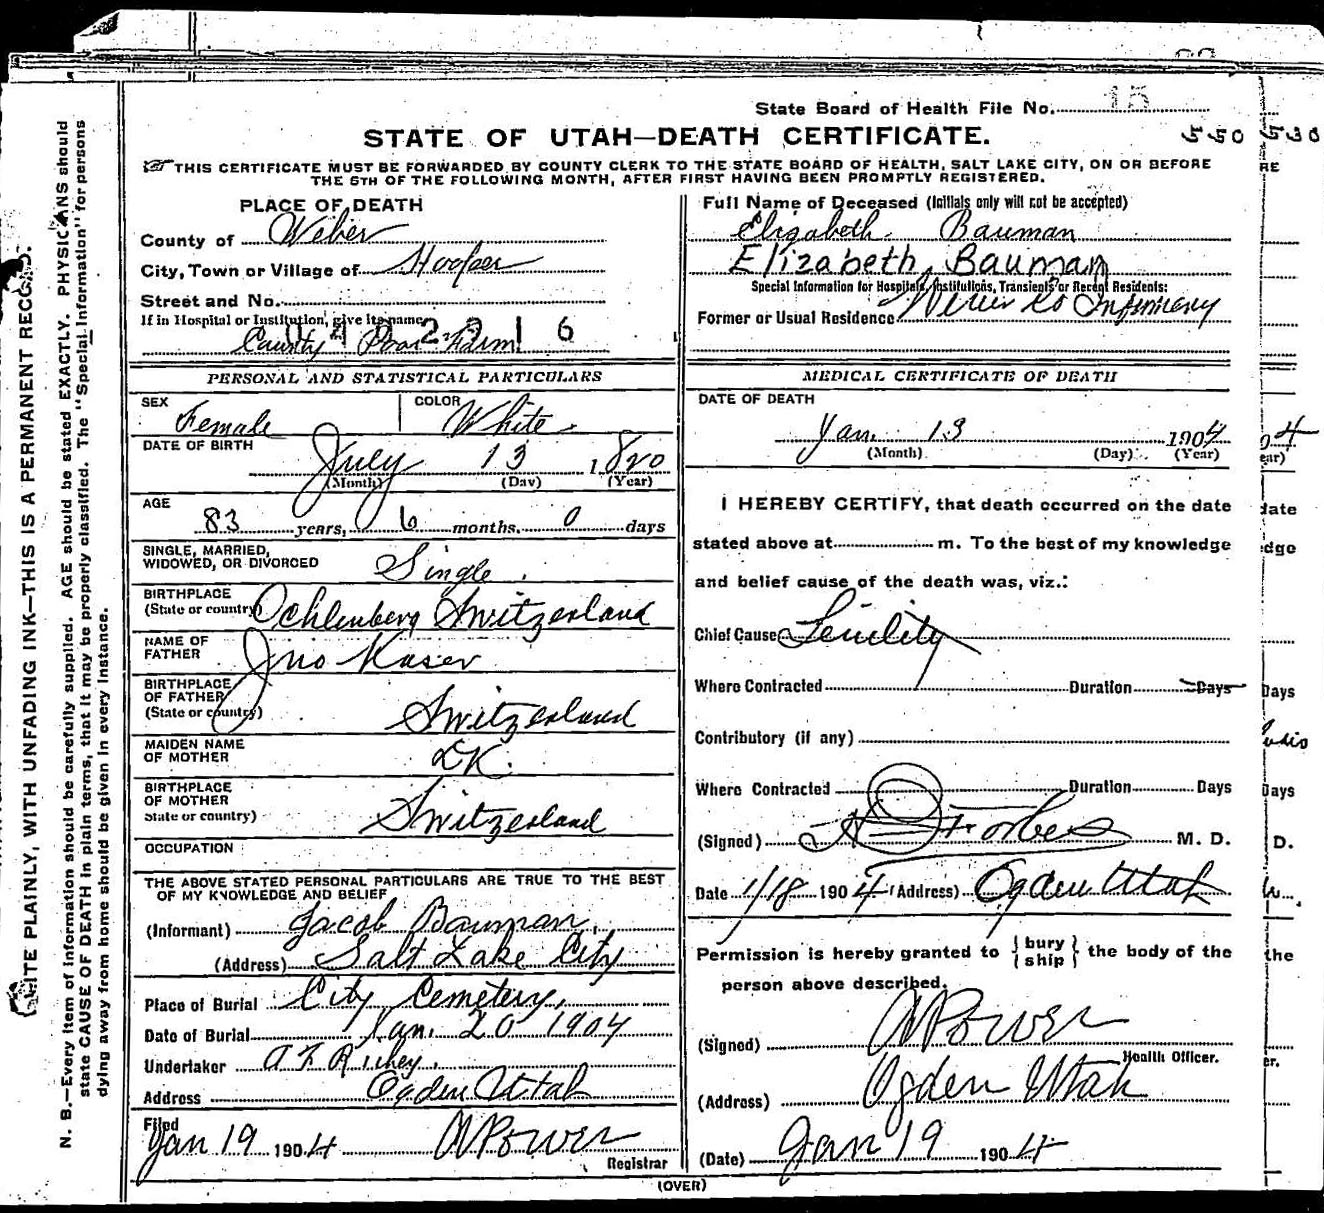 State Board of Health File No. 15
STATE OF UTAH—DEATH CERTIFICATE.
550 530
THIS CERTIFICATE MUST BE FORWARDED BY COUNTY CLERK TO THE STATE BOARD OF HEALTH, SALT LAKE CITY, ON OR BEFORE
THE 5TH OF THE FOLLOWING MONTH, AFTER FIRST HAVING BEEN PROMPTLY REGISTERED.
RE
PLACE OF DEATH
County of Weber
City, Town or Village of Hooper
Street and No.
If in Hospital or Institution, give its name
County Poor Farm
PERSONAL AND STATISTICAL PARTICULARS
SEX Female COLOR White
DATE OF BIRTH July 13 1820
(Month) (Day) (Year)
AGE 83 years, 6 months, 0 days
SINGLE, MARRIED,
WIDOWED, OR DIVORCED Single
BIRTHPLACE
(State or country) Ochlenberg Switzerland
NAME OF
FATHER Jno Kaser
BIRTHPLACE
OF FATHER
(State or country) Switzerland
MAIDEN NAME
OF MOTHER DK.
BIRTHPLACE
OF MOTHER
State or country) Switzerland
OCCUPATION
THE ABOVE STATED PERSONAL PARTICULARS ARE TRUE TO THE BEST
OF MY KNOWLEDGE AND BELIEF
(Informant) Jacob Bauman,
(Address) Salt Lake City
Place of Burial City Cemetery,
Date of Burial Jan. 20 1904
Undertaker
Address Ogden Utah
Filed
Jan 19 1904 Power
Registrar
Full Name of Deceased (Initials only will not be accepted)
Elizabeth Bauman
Elizabeth Bauman
Special Information for Hospitals, Institutions, Transients or Recent Residents:
Former or Usual Residence Weber Co Infirmary
MEDICAL CERTIFICATE OF DEATH
DATE OF DEATH
Jan. 13 1904
(Month) (Day) (Year)
I HEREBY CERTIFY, that death occurred on the date
stated above at m. To the best of my knowledge
and belief cause of the death was, viz.:
Chief Cause Senility
Where Contracted Duration Days
Contributory (if any)
Where Contracted Duration Days
(Signed) Forbes M. D.
Date 1/18 1904 (Address) Ogden Utah
Permission is hereby granted to {bury
ship} the body of the
person above described.
(Signed) Power
Health Officer.
(Address) Ogden Utah
(Date) Jan 19 1904
(OVER)
WRITE PLAINLY, WITH UNFADING INK—THIS IS A PERMANENT RECORD.
N. B.—Every item of information should be carefully supplied. AGE should be stated EXACTLY. PHYSICIANS should
state CAUSE OF DEATH in plain terms, that it may be properly classified. The "Special Information" for persons
dying away from home should be given in every instance.